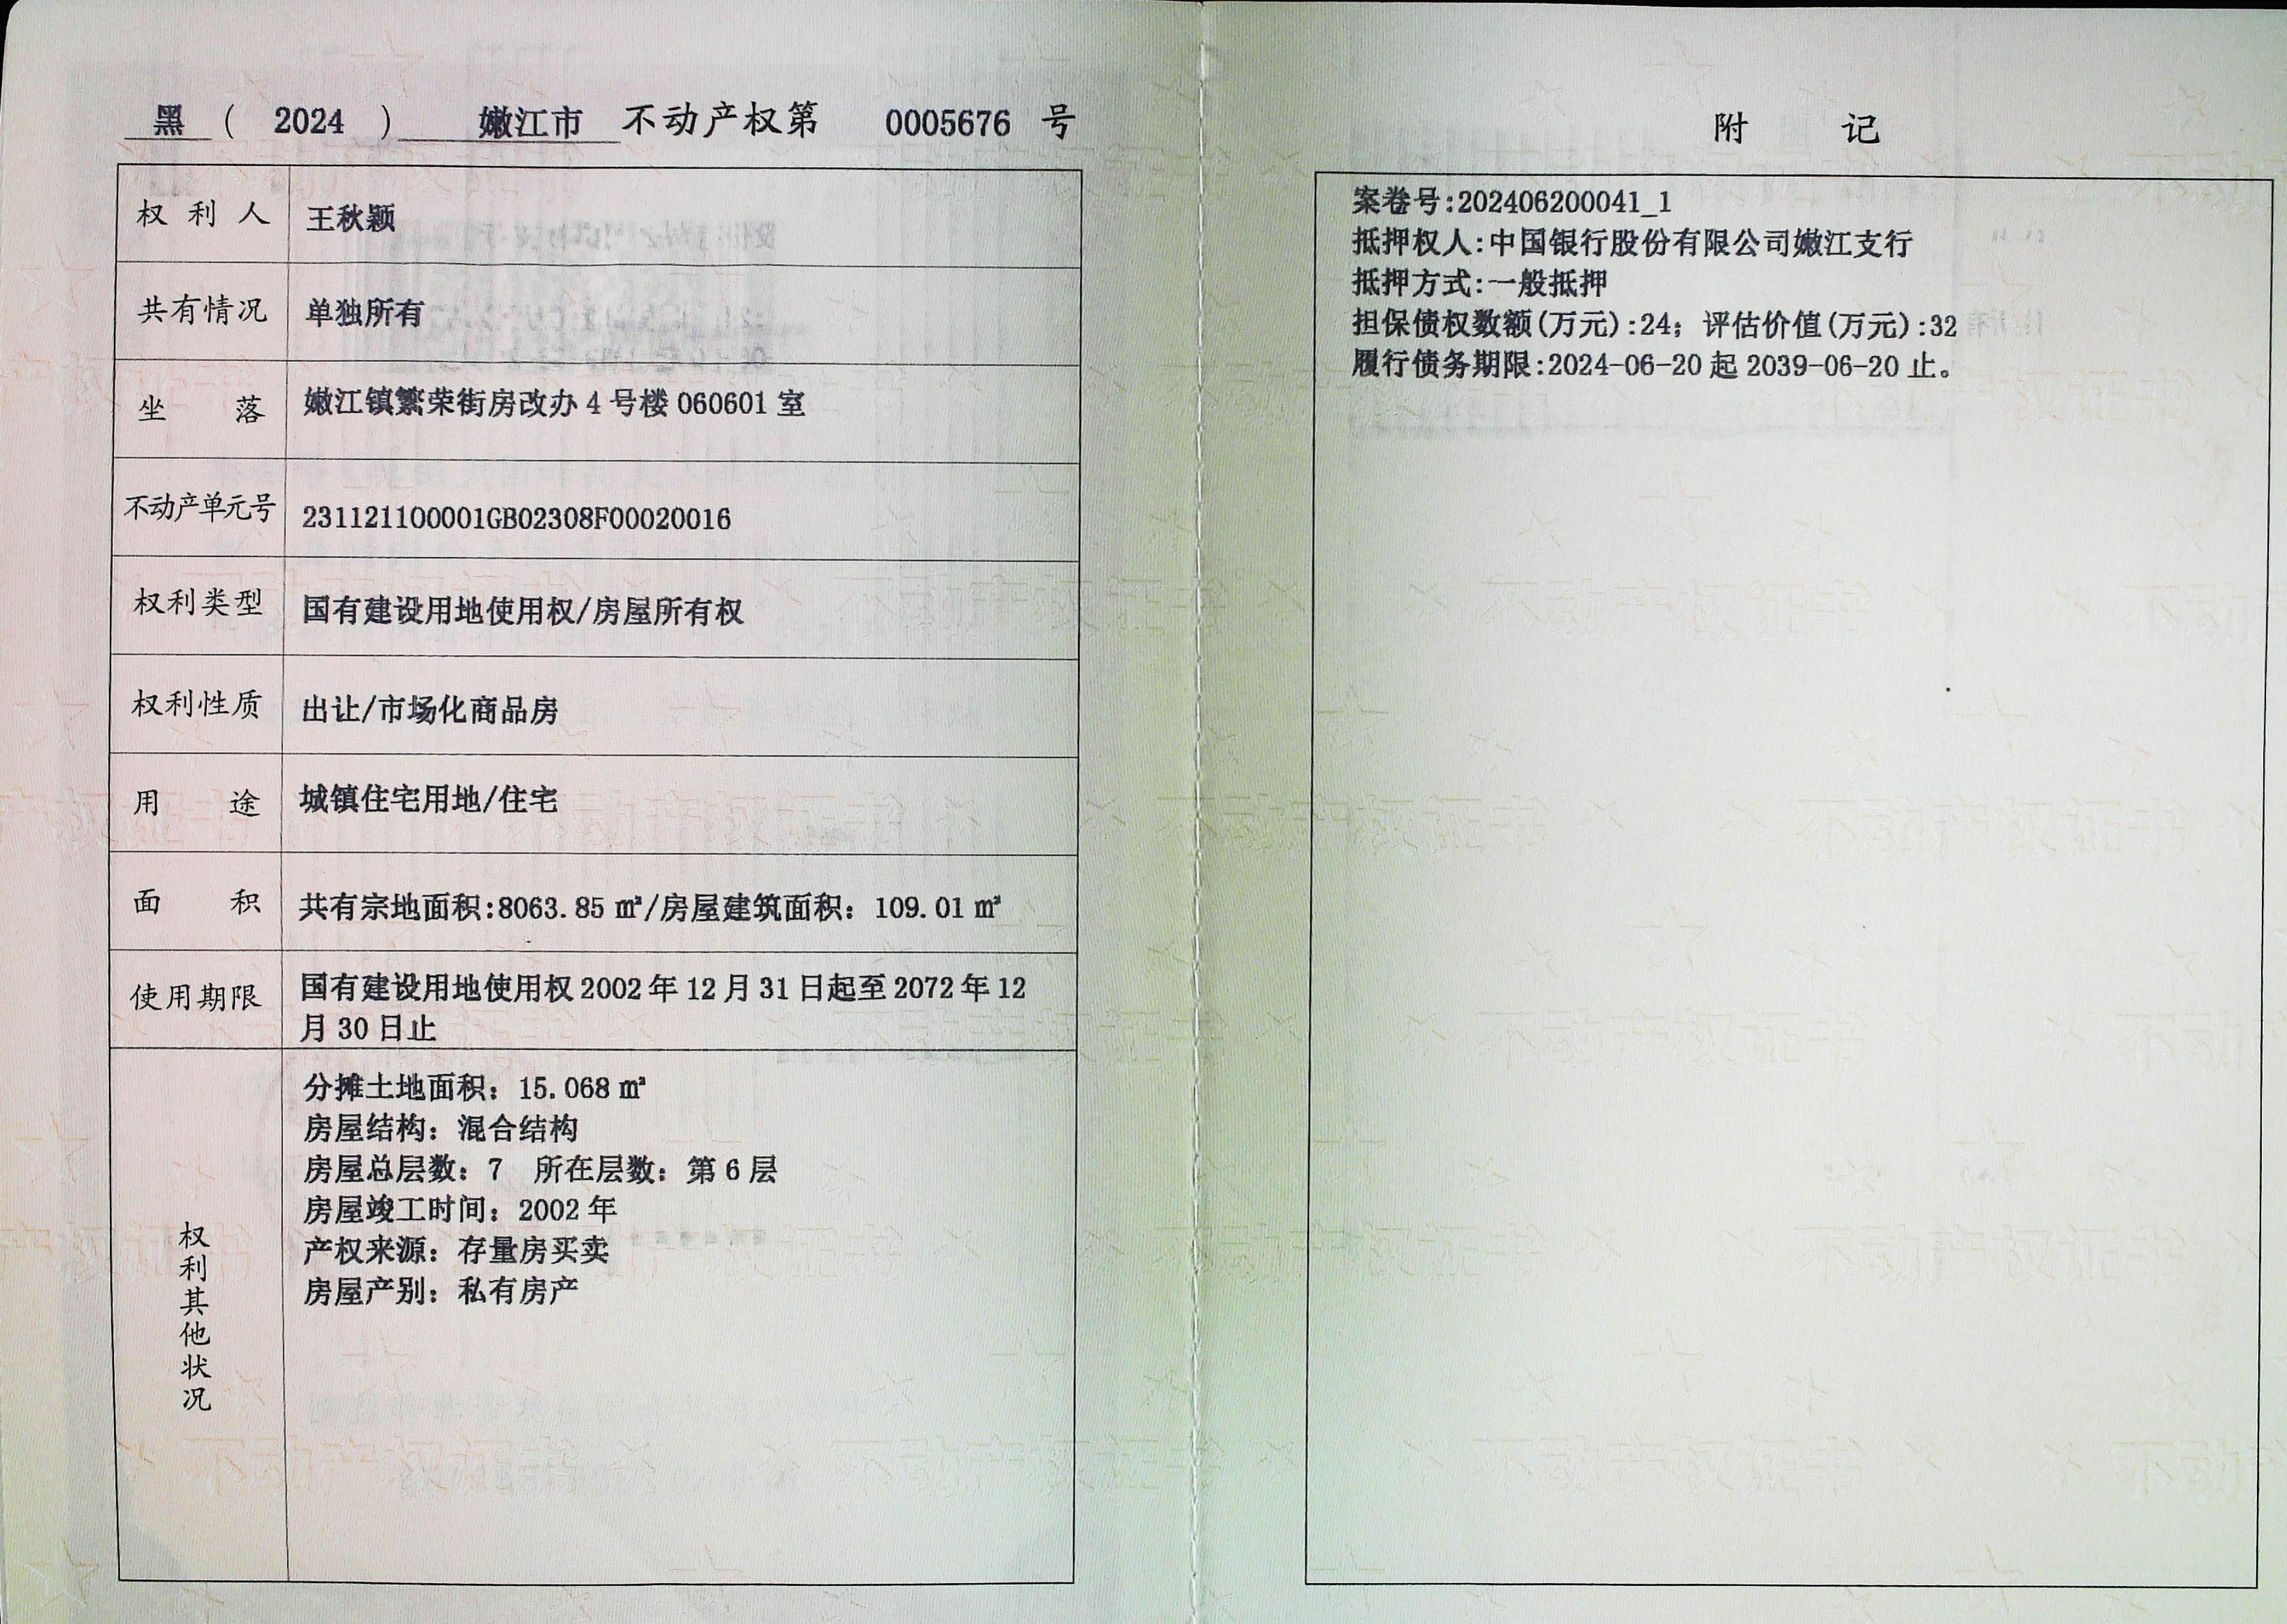 黑（ 2024 ） 嫩江市 不动产权第 0005676 号
权利人 王秋颖
共有情况 单独所有
坐落 嫩江镇繁荣街房改办 4 号楼 060601 室
不动产单元号 231121100001GB02308F00020016
权利类型 国有建设用地使用权/房屋所有权
权利性质 出让/市场化商品房
用途 城镇住宅用地/住宅
面积 共有宗地面积:8063.85 ㎡/房屋建筑面积：109.01 ㎡
使用期限 国有建设用地使用权 2002 年 12 月 31 日起至 2072 年 12
月 30 日止
权利其他状况
分摊土地面积：15.068 ㎡
房屋结构：混合结构
房屋总层数：7 所在层数：第 6 层
房屋竣工时间：2002 年
产权来源：存量房买卖
房屋产别：私有房产
附记
案卷号:202406200041_1
抵押权人:中国银行股份有限公司嫩江支行
抵押方式:一般抵押
担保债权数额(万元):24；评估价值(万元):32
履行债务期限:2024-06-20 起 2039-06-20 止。